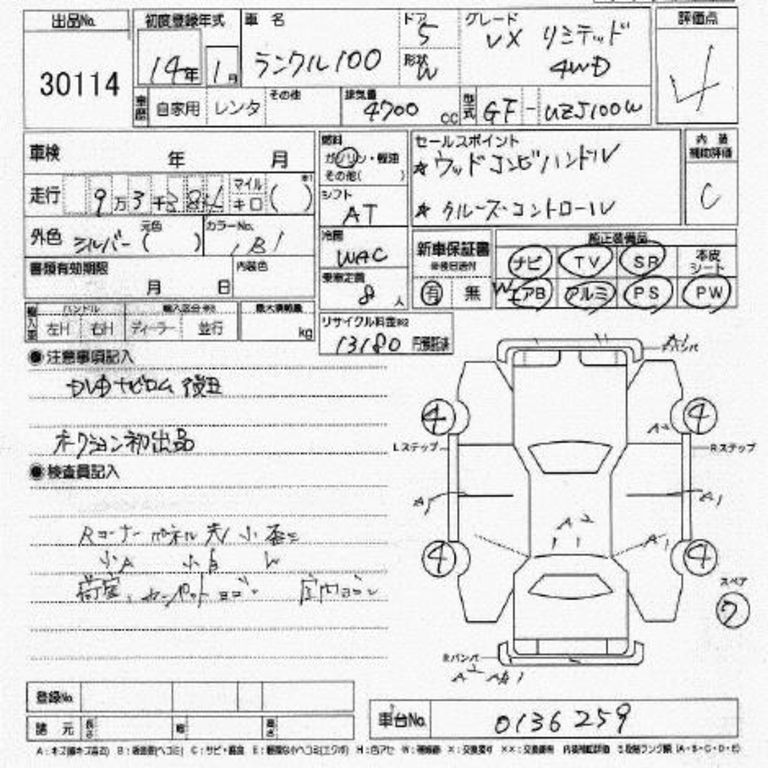 出品No. 30114
初度登録年式 14年 1月
車名 ランクル100
ドア 5
形状 W
グレード VX リミテッド 4WD
評価点 4
車歴 自家用 レンタ その他
排気量 4700 CC
型式 GF - UZJ100W
車検 年 月
燃料 ガソリン・軽油 その他( )
セールスポイント
★ウッドコンビハンドル
★クルーズコントロール
内装補助評価 C
走行 9万3千 マイル キロ ( )
シフト AT
外色 シルバー 元色 ( ) カラーNo. 1B1
冷房 WAC
新車保証書 ※後日送付 有 無
純正装備品
ナビ TV SR 本皮シート
WエアB アルミ PS PW
書類有効期限 月 日 内装色
乗車定員 8人
輸入車 ハンドル 左H 右H 輸入区分 ディーラー 並行
最大積載量 kg
リサイクル料金 13180 円預託済
●注意事項記入
DVDナビロム 後日
オークション初出品
●検査員記入
Rコーナーパネル先小歪ミ
小A 小凹 W
荷室、カーペットヨゴレ 室内ヨゴレ
Fバンパ A1
4 4
A2
Lステップ Rステップ
A1 A1
A2
A1
4 4
スペア 7
Rバンパ
A2
登録No.
諸元 長さ 幅 高さ
車台No. 0136259
A:キズ B: C:サビ・腐食 E: H:色アセ W:補修跡 X:交換要す XX:交換済 内装補助評価 5段階ランク順 (A・B・C・D・E)